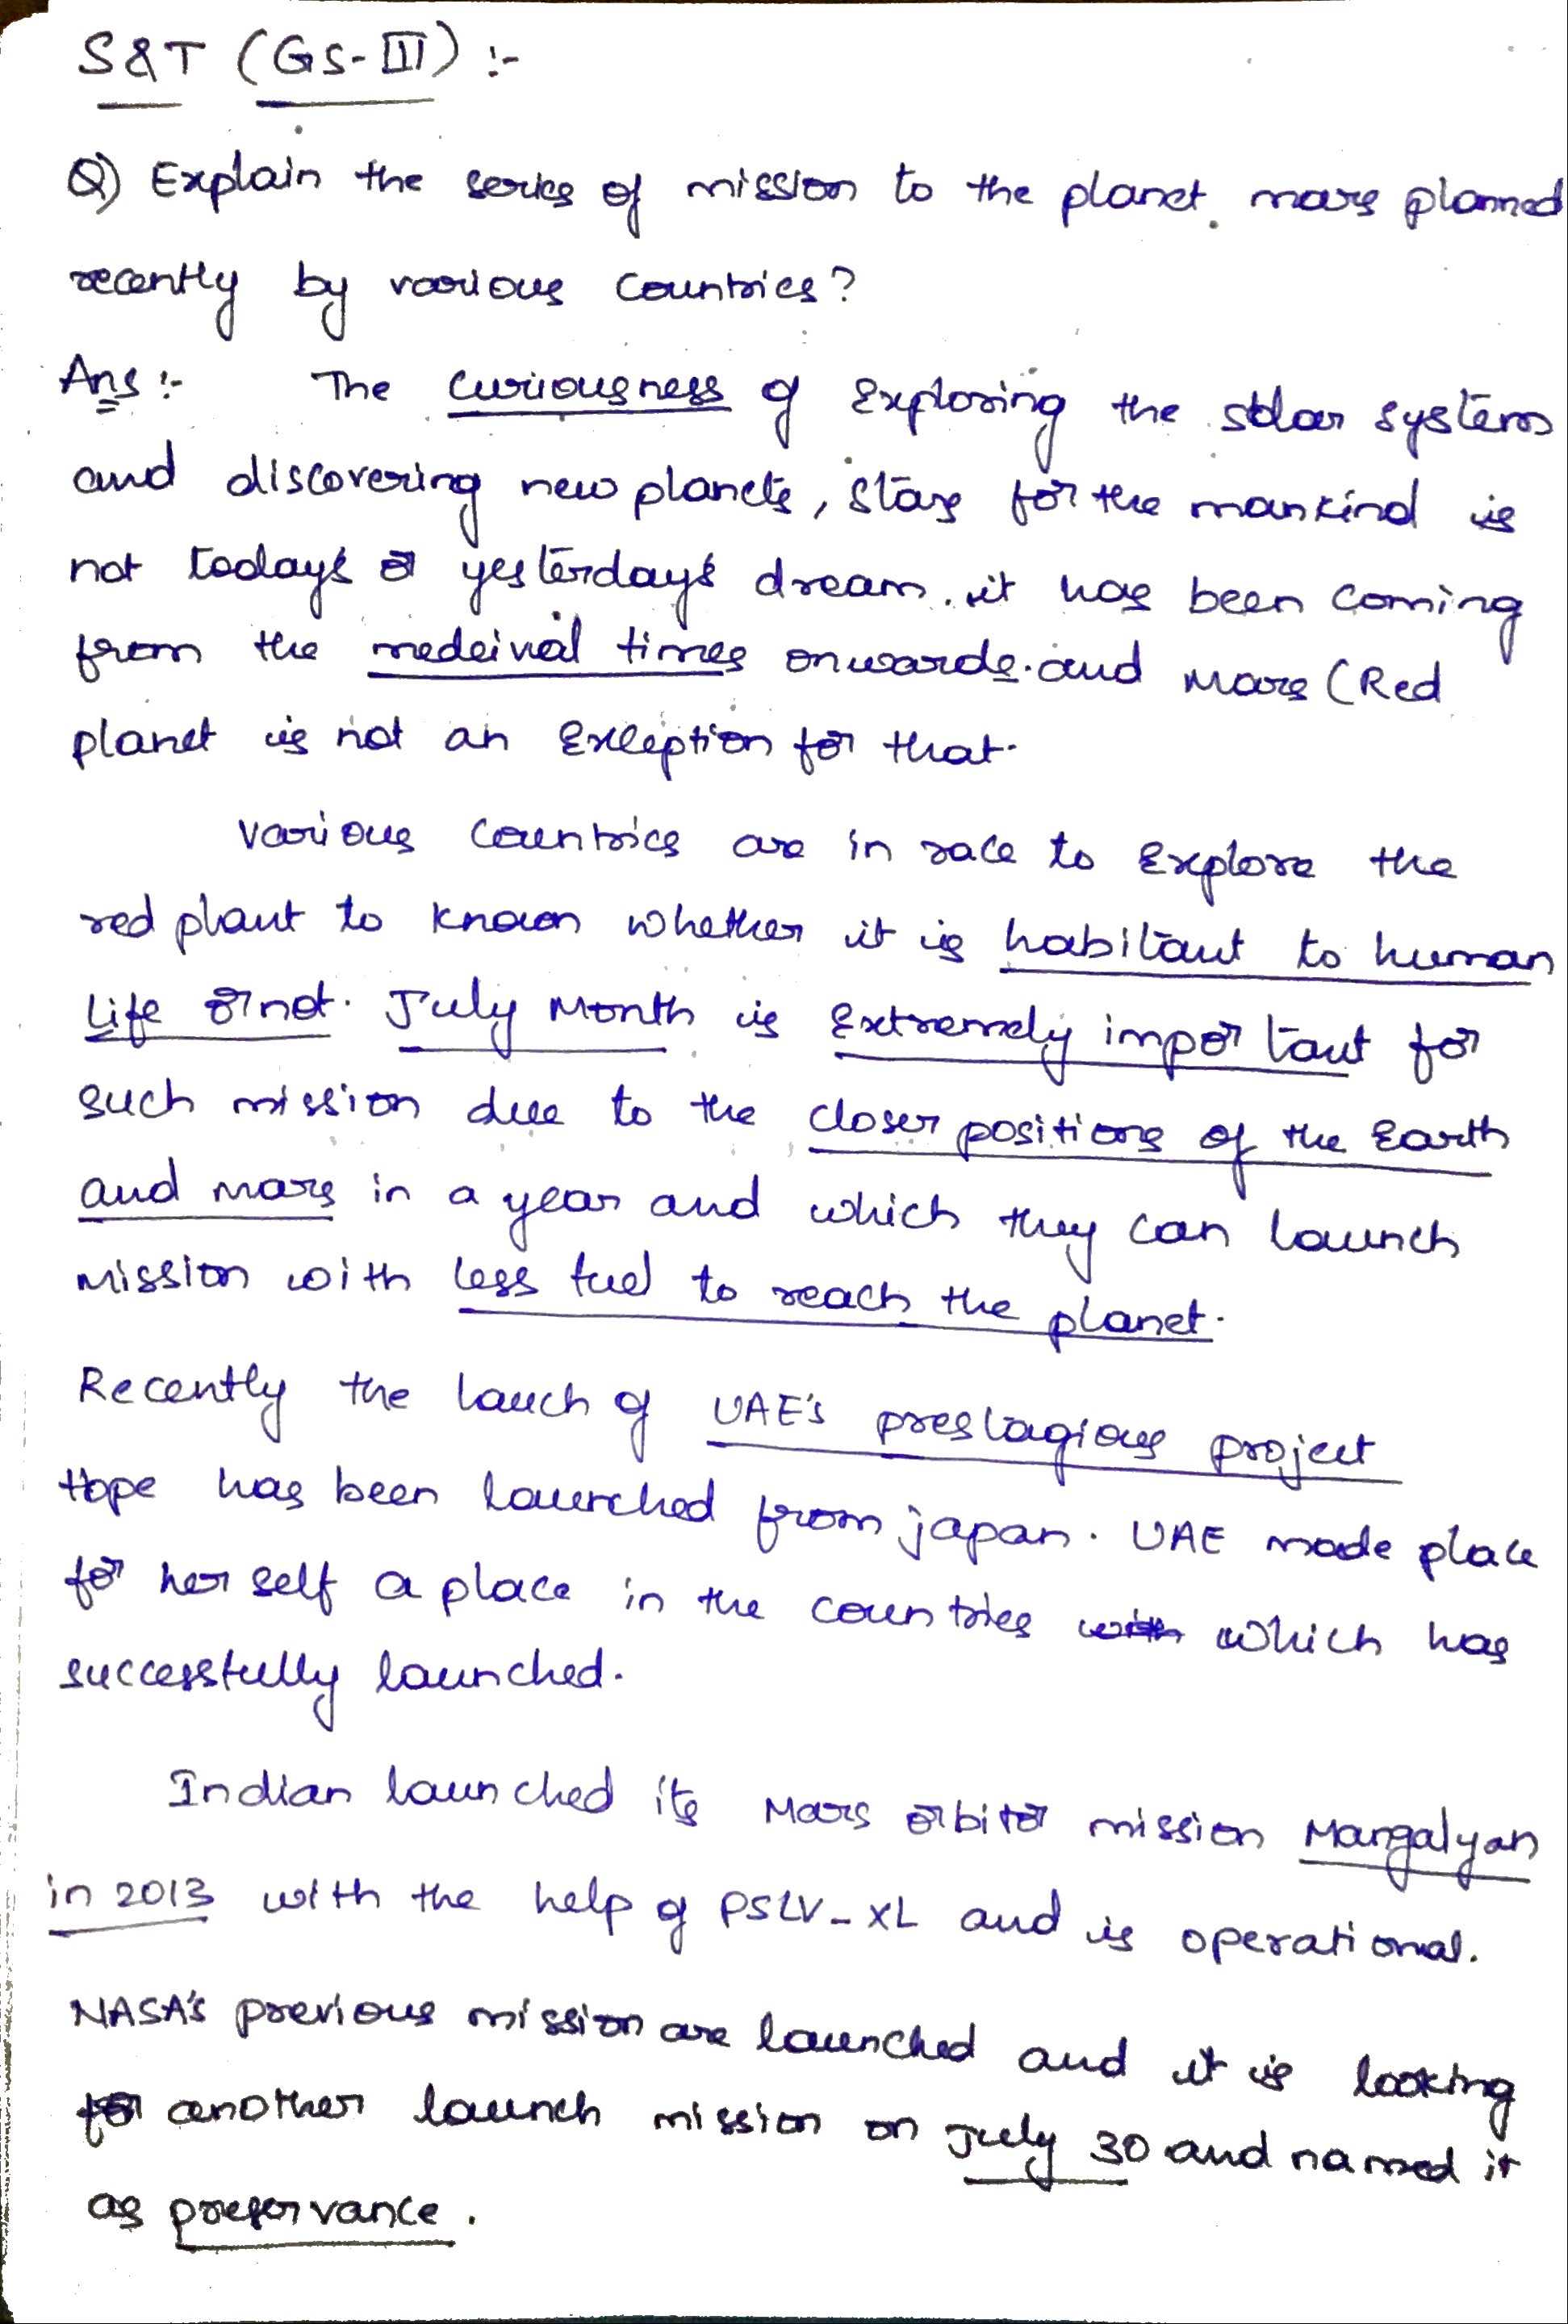 S&T (GS-III) :-
Q) Explain the series of mission to the planet. mars planned
recently by various Countries?
Ans :- The Curiousness of Exploring the solar system
and discovering new planets, stars for the mankind is
not todays or yesterdays dream. it has been coming
from the medeival times onwards. and Mars (Red
planet is not an Exception for that.
Various Countries are in race to Explore the
red plant to known whether it is habitant to human
Life or not. July Month is Extremely important for
such mission due to the closer positions of the Earth
and mars in a year and which they can launch
mission with less fuel to reach the planet.
Recently the lauch of UAE's prestagious project
Hope has been launched from japan. UAE made place
for her self a place in the countries with which has
successfully launched.
Indian launched its Mars orbitor mission Mangalyan
in 2013 with the help of PSLV-XL and is operational.
NASA's previous mission are launched and it is looking
for another launch mission on July 30 and named it
as preservance.